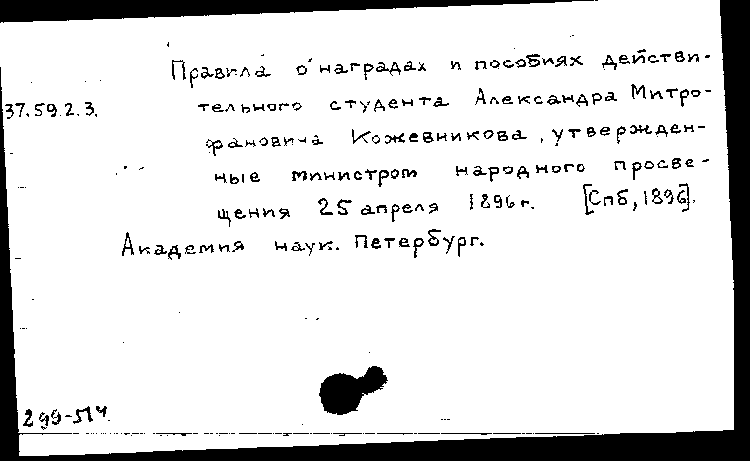 Правила о наградах и пособиях действи-
37.59.2.3. тельного студента Александра Митро-
фановича Кожевникова, утвержден-
ные министром народного просве-
щения 25 апреля 1896 г. [Спб, 1896].
Академия наук. Петербург.
299-514